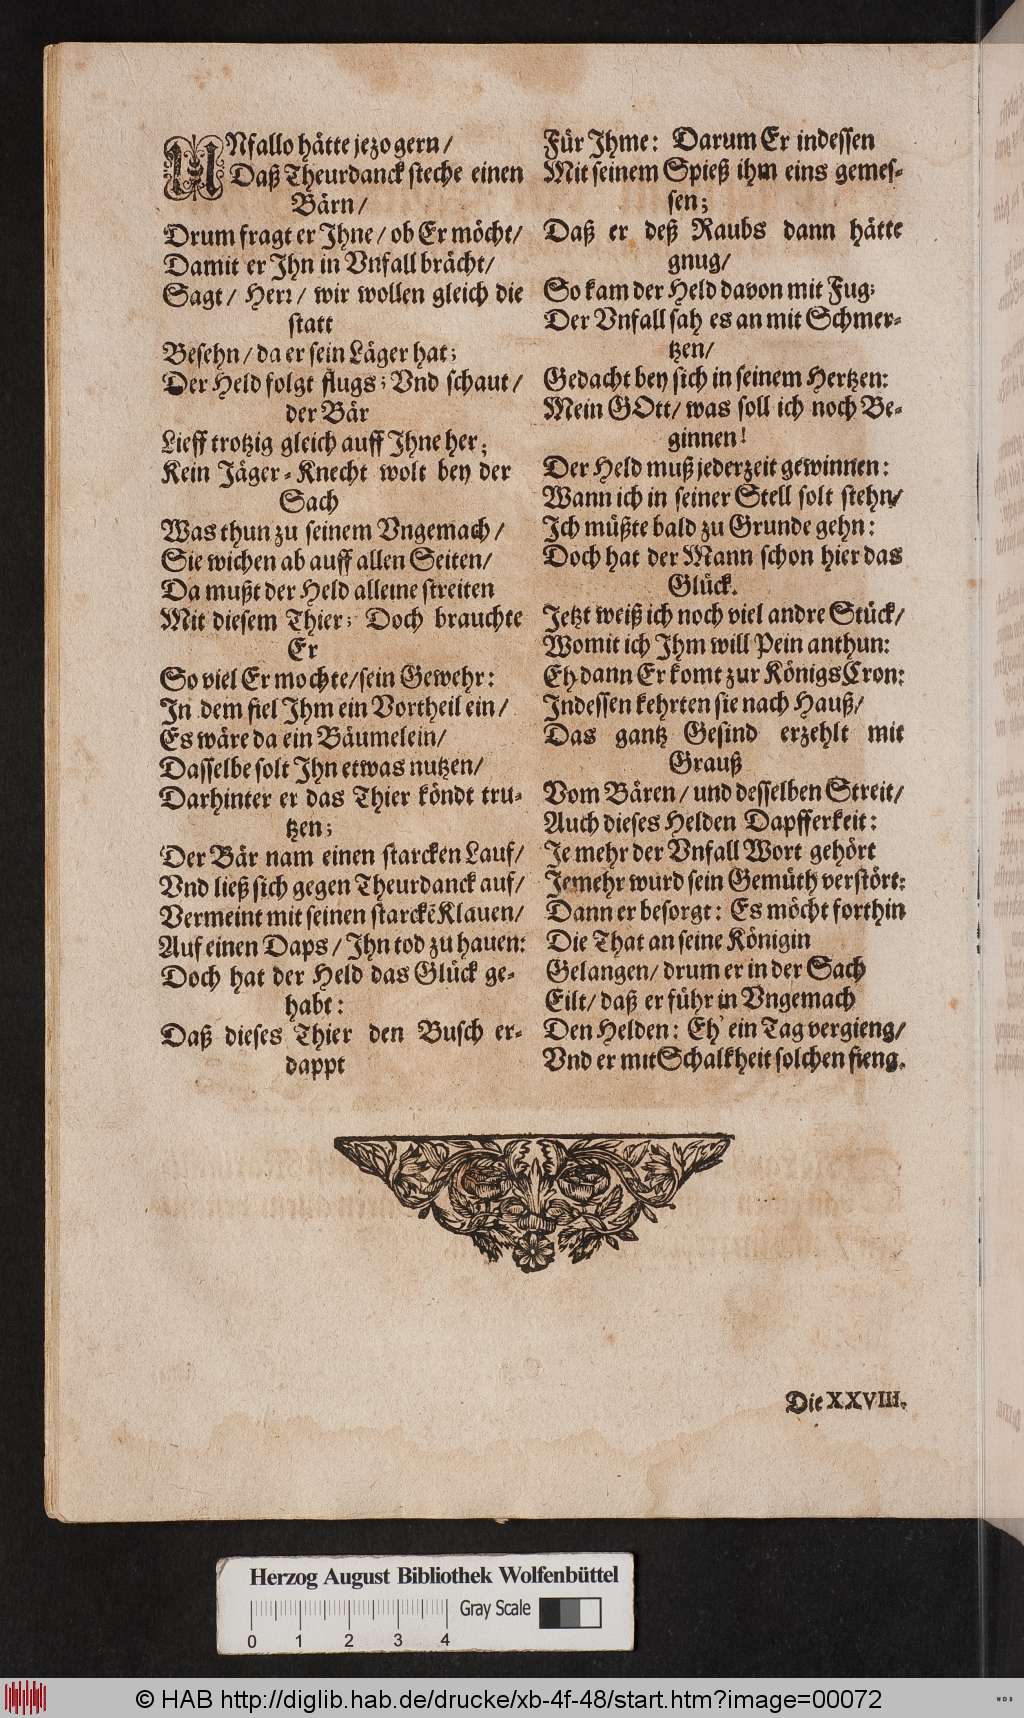 UNfallo hätte jezo gern/
Daß Theurdanck steche einen
Bärn/
Drum fragt er Jhne/ ob Er möcht/
Damit er Jhn in Vnfall brächt/
Sagt/ Herr/ wir wollen gleich die
statt
Besehn/ da er sein Läger hat;
Der Held folgt flugs; Vnd schaut/
der Bär
Lieff trotzig gleich auff Jhne her;
Kein Jäger-Knecht wolt bey der
Sach
Was thun zu seinem Vngemach/
Sie wichen ab auff allen Seiten/
Da mußt der Held alleine streiten
Mit diesem Thier; Doch brauchte
Er
So viel Er mochte/ sein Gewehr:
In dem fiel Jhm ein Vortheil ein/
Es wäre da ein Bäumelein/
Dasselbe solt Jhn etwas nutzen/
Darhinter er das Thier köndt tru-
tzen;
Der Bär nam einen starcken Lauf/
Vnd ließ sich gegen Theurdanck auf/
Vermeint mit seinen starckē Klauen/
Auf einen Daps/ Jhn tod zu hauen:
Doch hat der Held das Glück ge-
habt:
Daß dieses Thier den Busch er-
dappt
Für Jhme: Darum Er indessen
Mit seinem Spieß ihm eins gemes-
sen;
Daß er deß Raubs dann hätte
gnug/
So kam der Held davon mit Fug;
Der Vnfall sah es an mit Schmer-
tzen/
Gedacht bey sich in seinem Hertzen:
Mein GOtt/ was soll ich noch Be-
ginnen!
Der Held muß jederzeit gewinnen:
Wann ich in seiner Stell solt stehn/
Jch müßte bald zu Grunde gehn:
Doch hat der Mann schon hier das
Glück.
Jetzt weiß ich noch viel andre Stück/
Womit ich Jhm will Pein anthun:
Eh dann Er komt zur Königs Cron:
Jndessen kehrten sie nach Hauß/
Das gantz Gesind erzehlt mit
Grauß
Vom Bären/ und desselben Streit/
Auch dieses Helden Dapfferkeit:
Je mehr der Vnfall Wort gehört
Jemehr wurd sein Gemüth verstört:
Dann er besorgt: Es möcht forthin
Die That an seine Königin
Gelangen/ drum er in der Sach
Eilt/ daß er führ in Vngemach
Den Helden: Eh' ein Tag vergieng/
Vnd er mit Schalkheit solchen fieng.
Die XXVIII.
Herzog August Bibliothek Wolfenbüttel
Gray Scale
0 1 2 3 4
© HAB http://diglib.hab.de/drucke/xb-4f-48/start.htm?image=00072